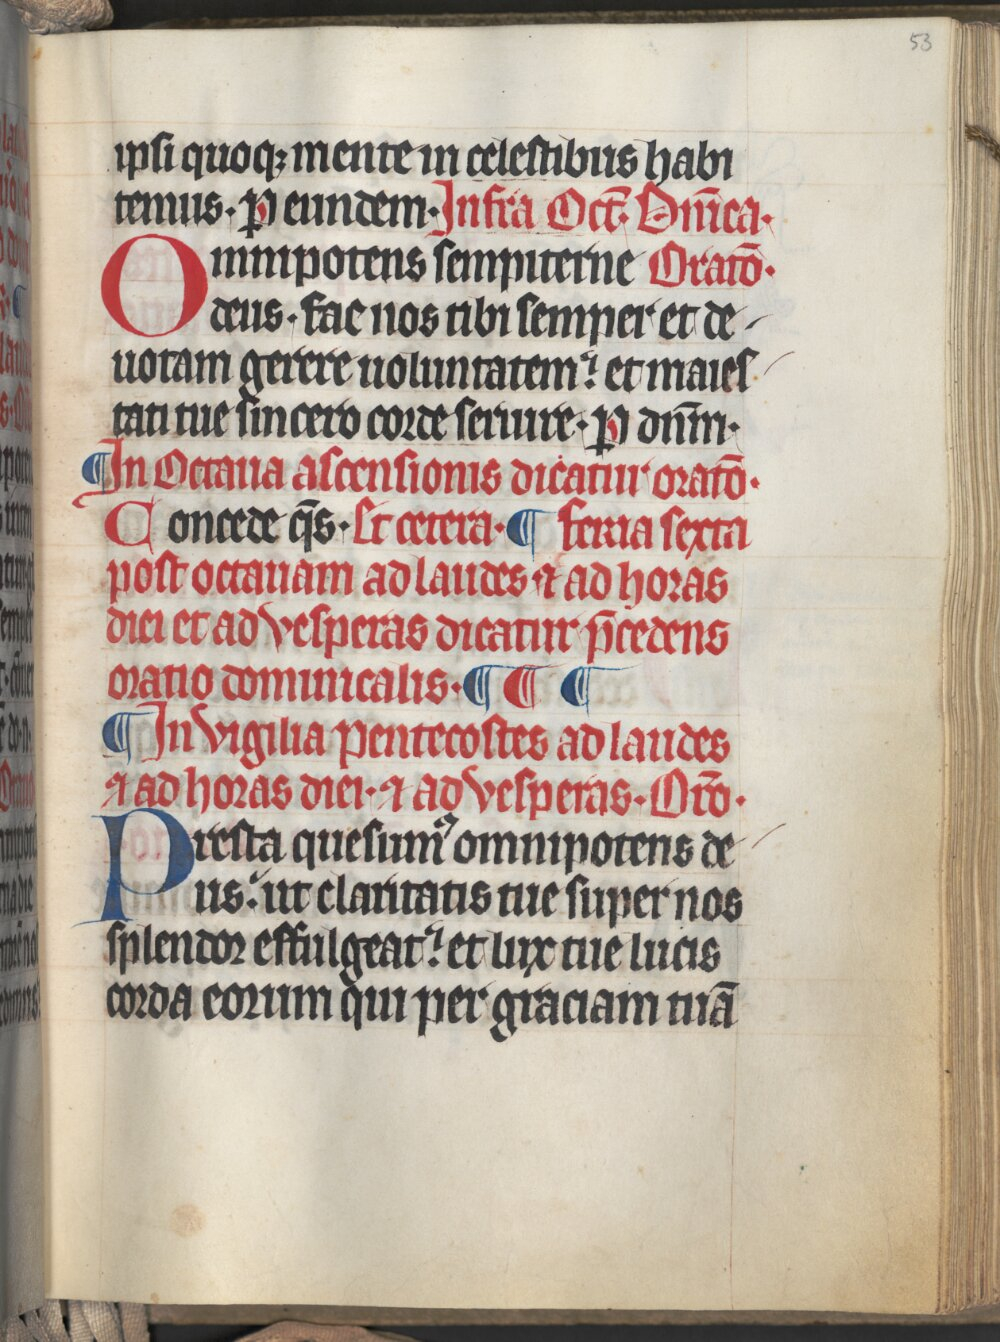 53
ipsi quoqꝫ mente in celestibus habi
temus· ꝑ eundem· Infra Oct̄· Dn̄ica·
Omnipotens sempiterne Oratō·
deus· fac nos tibi semper et de-
uotam gerere uoluntatem? et maies-
tati tue sincero corde seruire· ꝑ dn̄m·
¶ In Octaua ascensionis dicatur oratō·
Concede q̄s· Et cetera· ¶ feria sexta
post octauam ad laudes ⁊ ad horas
diei et ad vesperas dicatur p̄cedens
oratio dominicalis· ¶ ¶ ¶
¶ In vigilia pentecostes ad laudes
⁊ ad horas diei· ⁊ ad vesperas· Orō·
Presta quesumꝰ omnipotens de-
us? ut claritatis tue super nos
splendor effulgeat? et lux tue lucis
corda eorum qui per graciam tuā